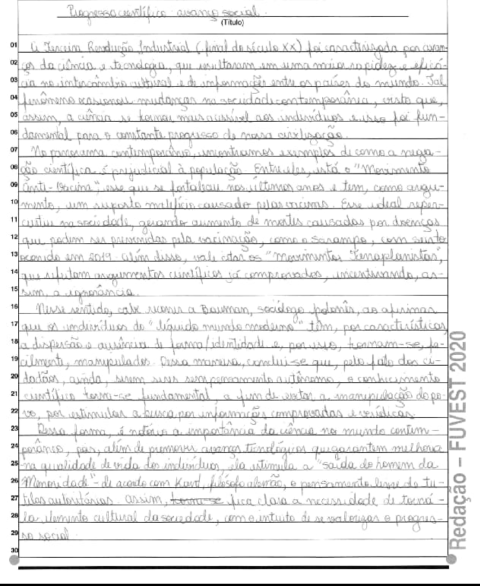 Progresso científico, avanço social.
(Título)
01 A Terceira Revolução Industrial (final do século XX) foi caracterizada por avan-
02 ços da ciência e tecnologia, que resultaram em uma maior rapidez e eficá-
03 cia no intercâmbio cultural e de informação entre os países do mundo. Tal
04 fenômeno ocasionou mudanças na sociedade contemporânea, visto que,
05 assim, a ciência se tornou mais acessível aos indivíduos e isso foi fun-
06 damental para o constante progresso de nossa civilização.
07 No panorama contemporâneo, encontramos exemplos de como a nega-
08 ção científica é prejudicial à população. Entre eles, está o "Movimento
09 Anti-Vacina", esse que se fortaleceu nos últimos anos e tem, como argu-
10 mento, um suposto malefício causado pelas vacinas. Esse ideal reper-
11 cutiu na sociedade, gerando aumento de mortes causadas por doenças
12 que podem ser prevenidas pela vacinação, como o sarampo, com surto
13 ocorrido em 2019. Além disso, vale citar os "Movimentos Terraplanistas",
14 que refutam argumentos científicos já comprovados, incentivando, as-
15 sim, a ignorância.
16 Nesse sentido, cabe recorrer a Bauman, sociólogo polonês, ao afirmar
17 que os indivíduos do "líquido mundo moderno" têm, por características,
18 a dispersão e ausência de forma/identidade e, por isso, tornam-se, fa-
19 cilmente, manipulados. Dessa maneira, conclui-se que, pelo fato dos ci-
20 dadãos, ainda, serem seres sem pensamento autônomo, o conhecimento
21 científico torna-se fundamental, a fim de evitar a manipulação do po-
22 vo, por estimular a busca por informações comprovadas e verídicas.
23 Dessa forma, é notória a importância da ciência no mundo contem-
24 porâneo, pois, além de promover avanços tecnológicos que garantem melhoria
25 na qualidade de vida dos indivíduos, ela estimula a "saída do homem da
26 Menoridade" de acordo com Kant, filósofo alemão, o pensamento livre de tu-
27 telas autoritárias. Assim, torna-se fica clara a necessidade de torná-
28 la elemento cultural da sociedade, com o intuito de se valorizar o progres-
29 so social.
30
Redação – FUVEST 2020